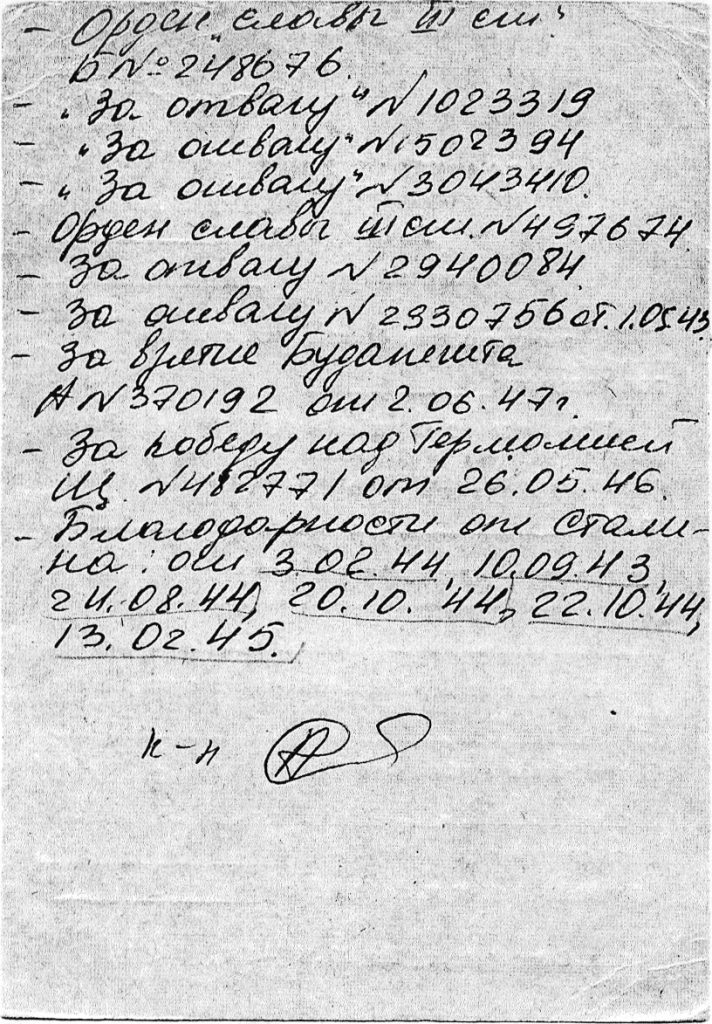 - Орден „славы III ст."
Б № 248676.
- „За отвагу" N 1023319
- „За отвагу" N 1502394
- „За отвагу" N 3043410.
- Орден славы III ст. N 497674
- За отвагу N 2940084
- За отвагу N 2330756 от. 1.05.43.
- За взятие Будапешта
А N 370192 от 2.06.47 г.
- За победу над Германией
Щ N 482771 от 26.05.46.
- Благодарности от Стали-
на: от 3.02.44, 10.09.43,
24.08.44, 20.10.44, 22.10.44,
13.02.45.
к-н